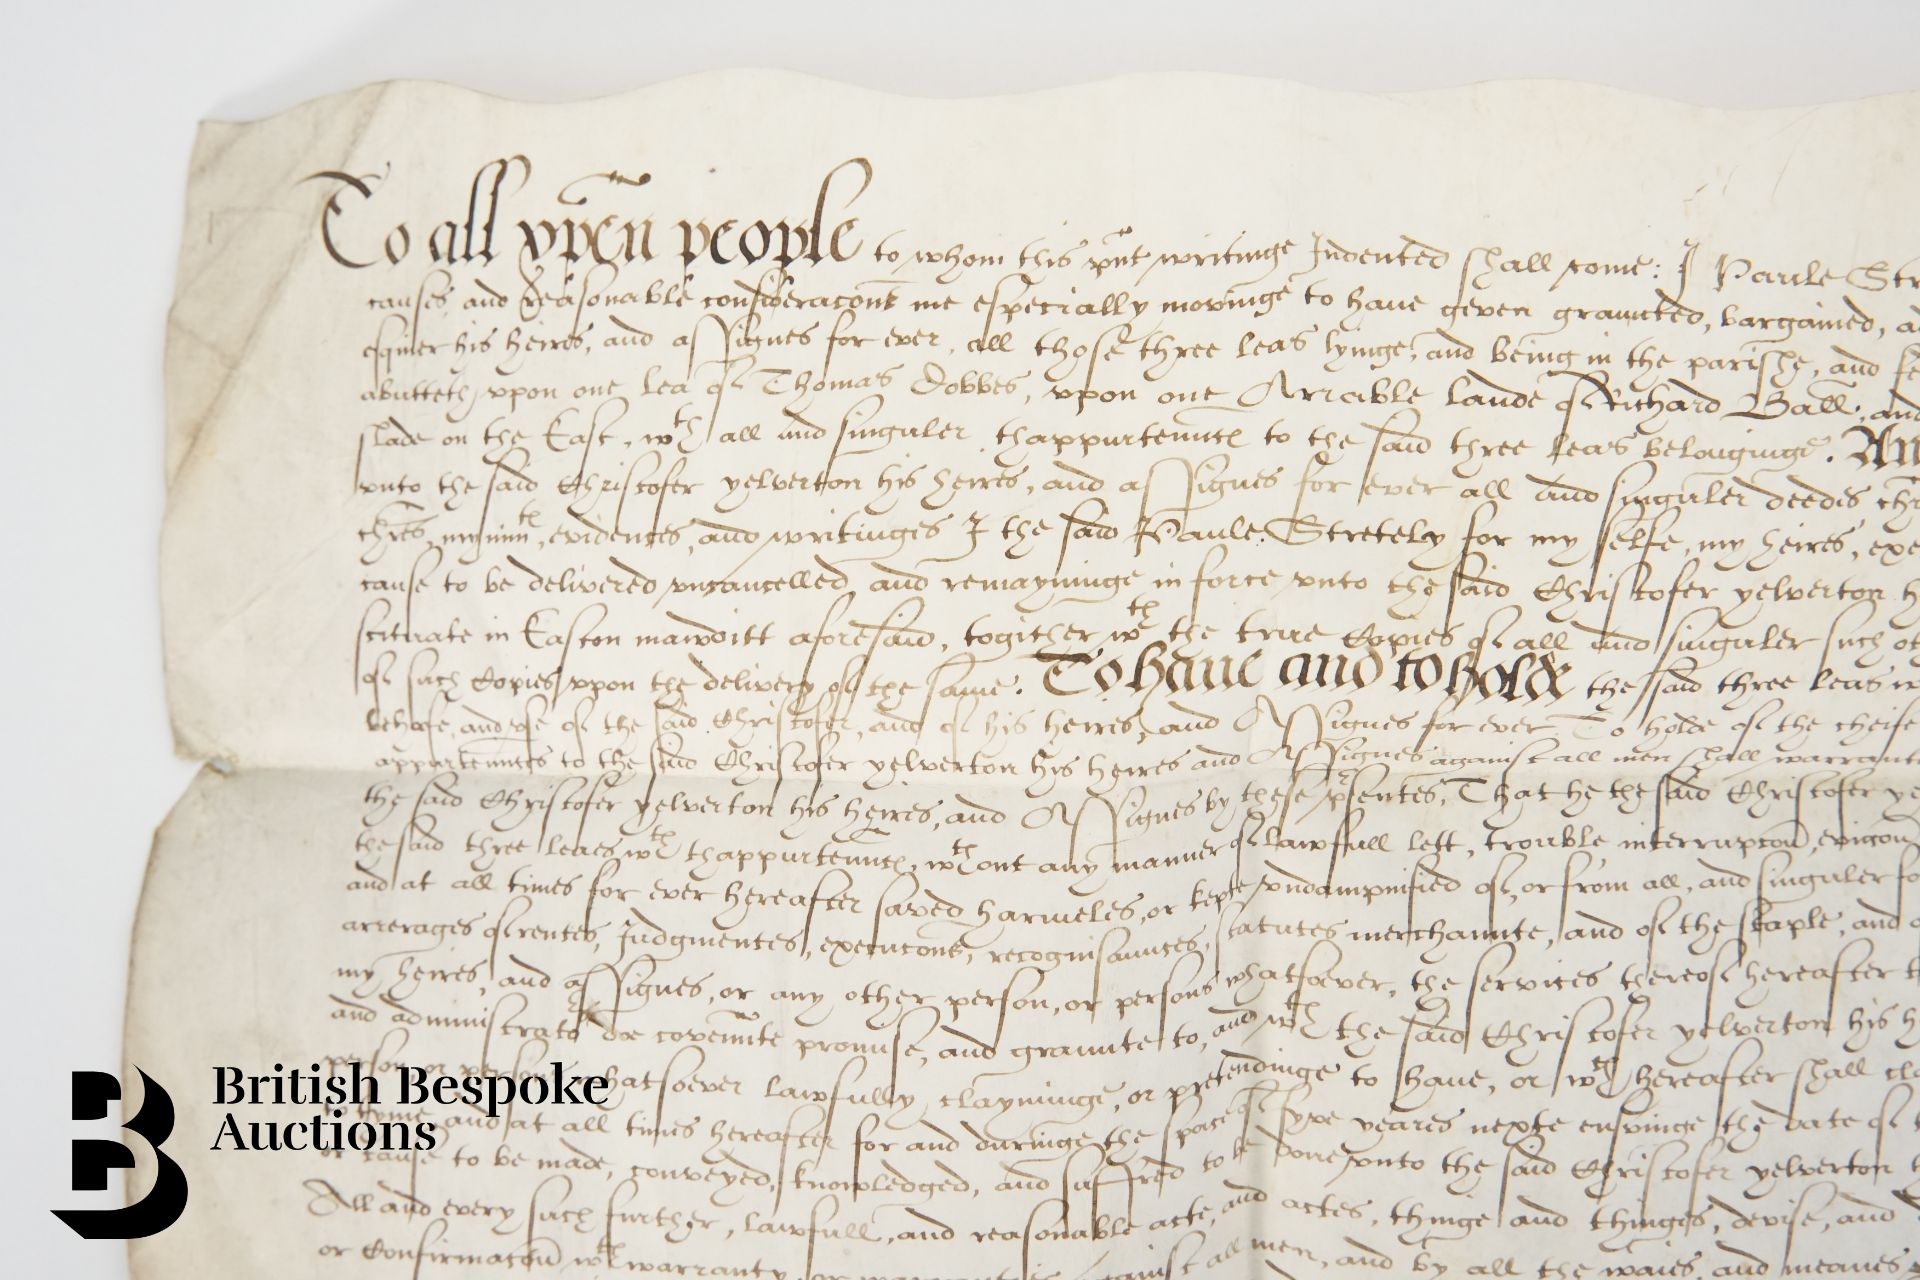 To all xpen people to whom this pnt writinge Indented shall come: I Paule Str
causes, and reasonable consideracons me especially movinge to haue geven graunted, bargained, a
esquier his heires, and assignes for ever, all those three leas lyinge, and being in the parishe, and fe
abutteth vpon one lea of Thomas Dobbes, vpon one Arrable lande of Richard Ball, and
slade on the East, wth all and singuler thappurtennces to the said three leas belonginge. An
vnto the said Christofer yelverton his heires, and assignes for ever all and singuler deedes
evidences, and writinges I the said Paule Stretely for my selfe, my heires, exe
cause to be delivered vncancelled and remayninge in force vnto the said Christofer yelverton h
scituate in Easton mawditt aforesaid, togither wth the true Copies of all and singuler such ot
of such Copies vpon the delivery of the same. To haue and to holde the said three leas w
behofe, and vse of the said Christofer, and of his heires, and Assignes for ever To holde of the cheife
appurtennces to the said Christofer yelverton his heires and Assignes against all men shall warrant
the said Christofer yelverton his heires, and Assignes by these psentes, That he the said Christofer ye
the said three leaes wth thappurtennces, wthout any manner of lawfull lett, trouble interrupcon, evicon
and at all times for ever hereafter saved harmeles, or kepte vndampnified of, or from all, and singuler fo
arrerages of rentes, Judgmentes, execucons, recognisaunces, statutes merchaunte, and of the staple, and o
my heires, and assignes, or any other person, or persons whatsoever, the services thereof hereafter t
and administrators doe covennte promise, and graunte to, and wth the said Christofer yelverton his h
person, or persons whatsoever lawfully clayminge, or pretendinge to haue, or wch hereafter shall cla
to tyme and at all times hereafter for and duringe the space of syxe yeares nexte ensvinge the date of t
or cause to be made, conveyed, knowledged, and suffred to be done vnto the said Christofer yelverton h
All and every such further, lawfull, and reasonable acte, and actes, thinge and thinges, devise, and
or Confirmacon wth warranty, or against all men, and by all the waies, and meanes
British Bespoke
Auctions